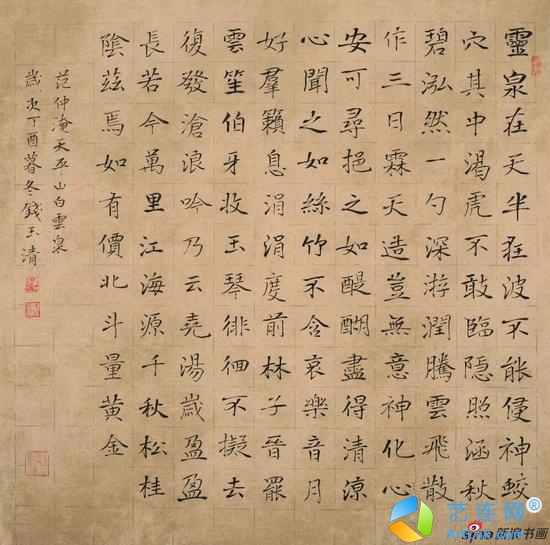 靈泉在天半狂波不能侵神蛟
穴其中渴虎不敢臨隱照涵秋
碧泓然一勺深游潤騰雲飛散
作三日霖天造豈無意神化心
安可尋挹之如醍醐盡得清涼
心聞之如絲竹不含哀樂音月
好羣籟息涓涓度前林子晉罷
雲笙伯牙收玉琴徘徊不擬去
復發滄浪吟乃云堯湯歲盈盈
長若今萬里江海源千秋松桂
隂茲焉如有價北斗量黃金
范仲淹天平山白雲泉
歲次丁酉暮冬錢玉清
艺连网®
sina新浪书画